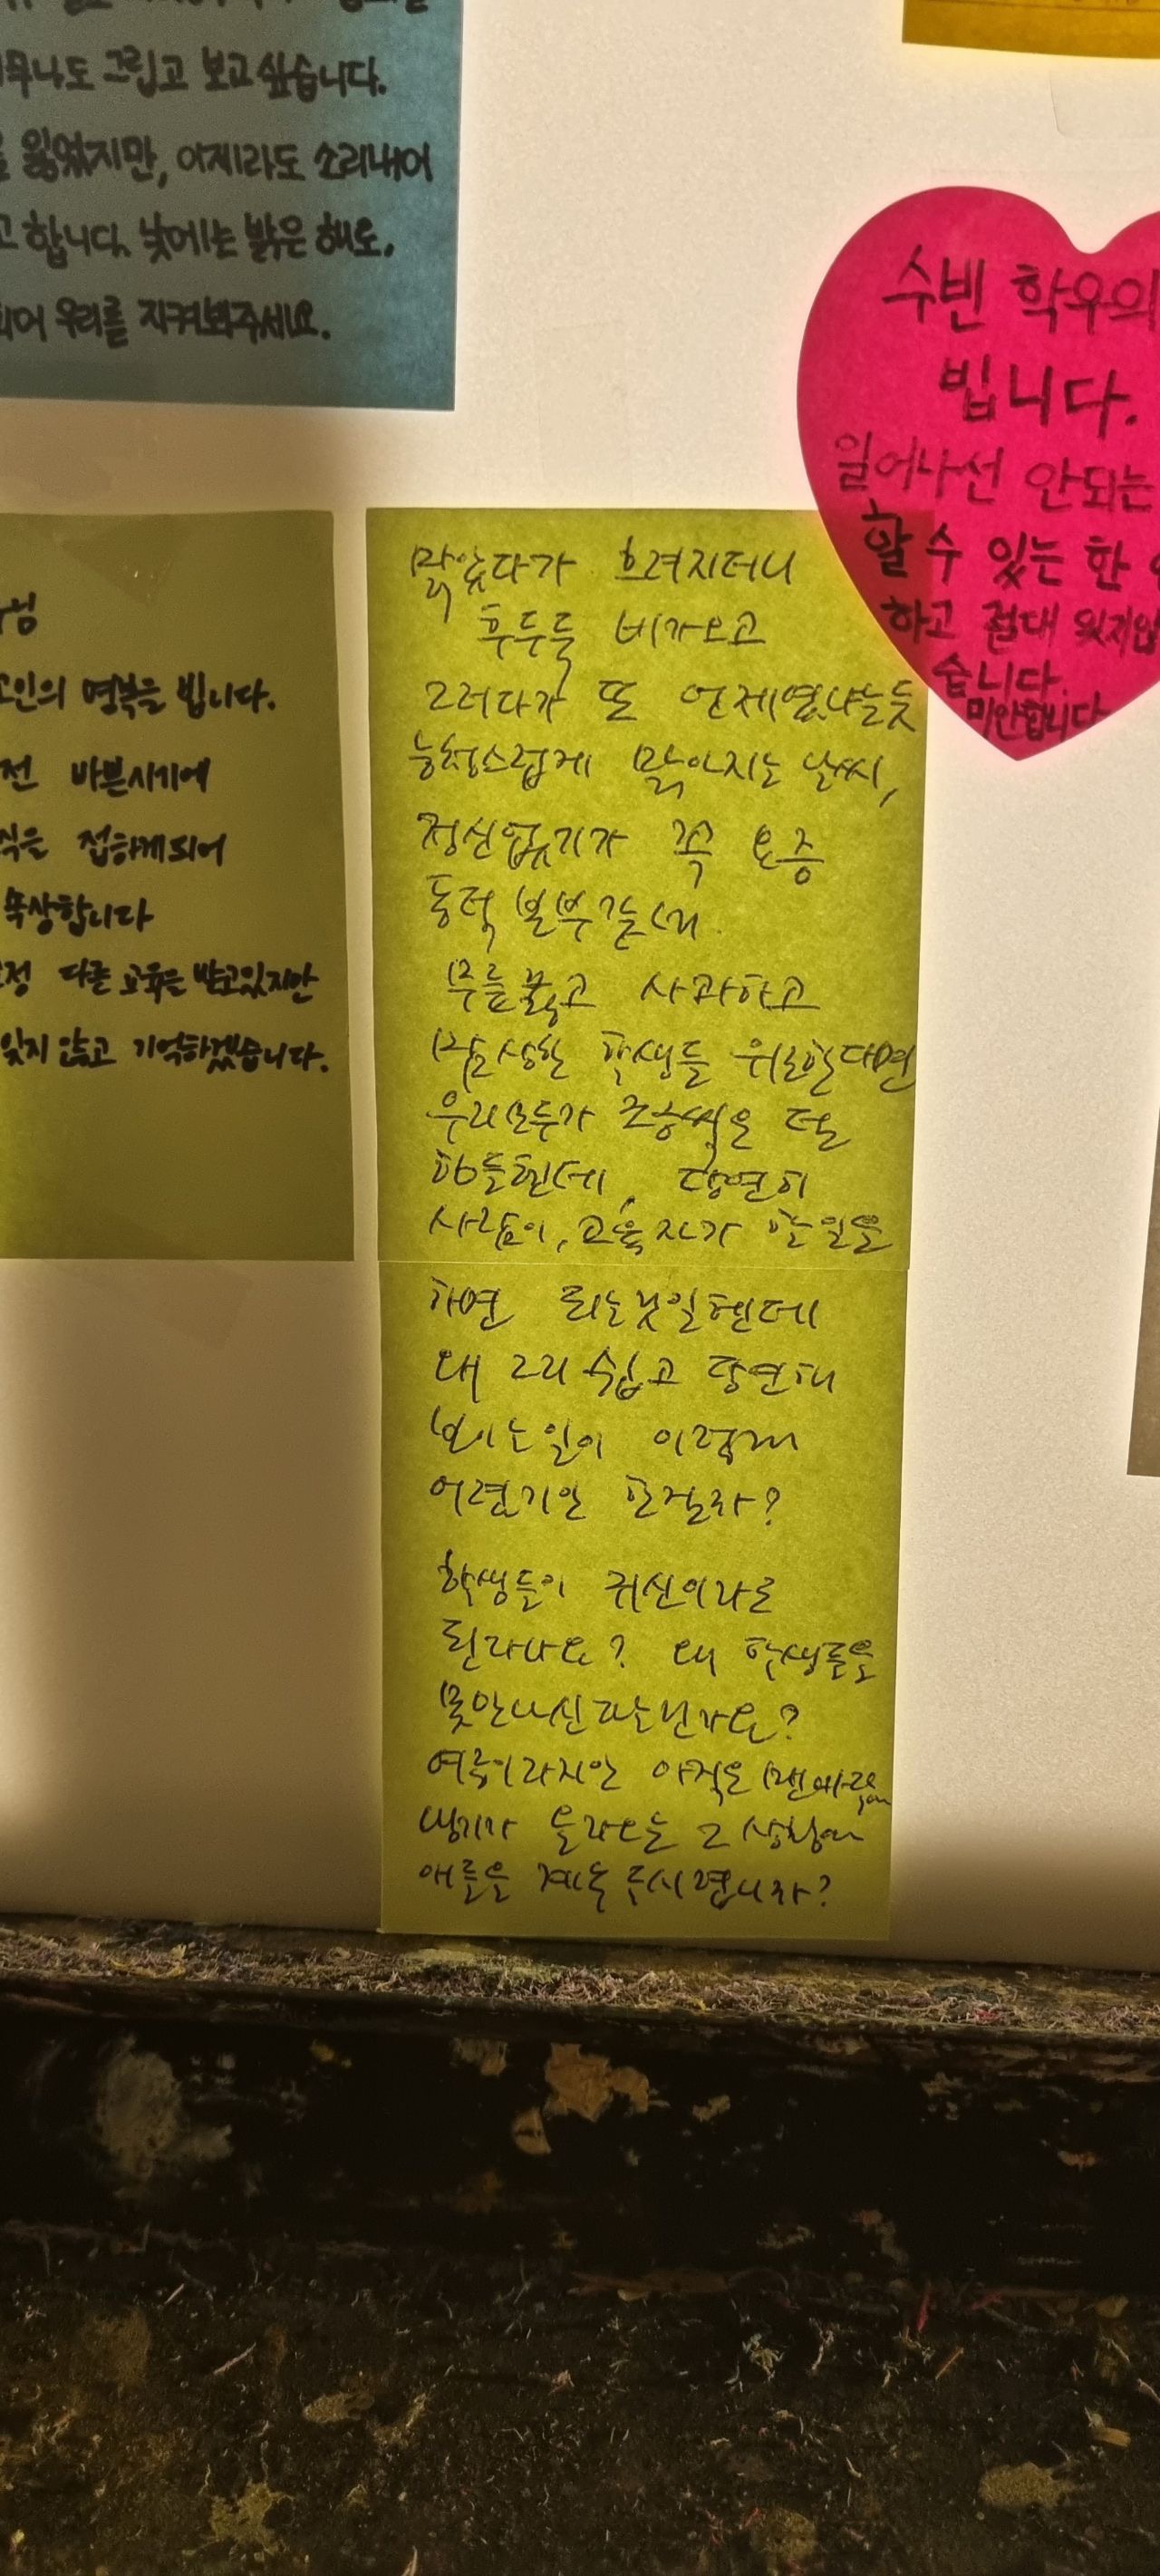 그립고 보고싶습니다.
잃었지만, 이제라도 소리내어
고 합니다. 낮에는 밝은 해로,
되어 우리를 지켜봐주세요.
수빈 학우의
빕니다.
일어나선 안되는
할 수 있는 한
하고 절대 잊지않
습니다.
미안합니다
고인의 명복을 빕니다.
전 바쁜시기에
식을 접하게되어
속상합니다
다른 교육을 받고있지만
잊지 않고 기억하겠습니다.
맑았다가 흐려지더니
후두둑 비가오고
그러다가 또 언제였냐는듯
능청스럽게 맑아지는 날씨,
정신없기가 꼭 요즘
동덕 본부같네.
무릎꿇고 사과하고
맘상한 학생들 위로한다면
우리모두가 조금씩은 덜
힘들텐데, 당연히
사람이, 교육자가 할일을
하면 되는것일텐데
왜 그리 쉽고 당연해
보이는일이 이렇게
어렵기만 한걸까?
학생들이 귀신이라도
된답니까? 왜 학생들을
못만나신다는건가요?
여름이라지만 아직은 맨바닥에
냉기가 올라오는 그 상황에
애들을 계속 두시렵니까?